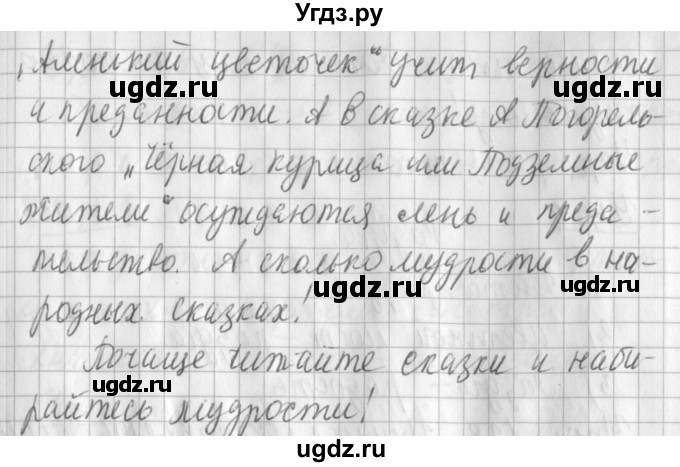 Угдз.ру
„Аленький цветочек“ учит верности
и преданности. А в сказке А Погорель-
ского „Чёрная курица или Подземные
жители“ осуждаются лень и преда-
тельство. А сколько мудрости в на-
родных сказках!
Почаще читайте сказки и наби-
райтесь мудрости!
ugdz.ru
ugdz.ru
ugdz.ru
ugdz.ru
ugdz.ru
ugdz.ru
ugdz.ru
ugdz.ru
Угдз.ру